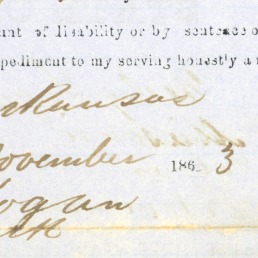 unt of disability or by sentence o
pediment to my serving honestly a
rkansas
November 186 3
ogan